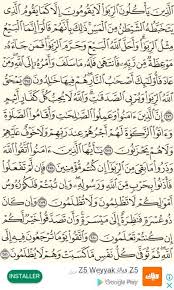 ٱلَّذِينَ يَأۡكُلُونَ ٱلرِّبَوٰاْ لَا يَقُومُونَ إِلَّا كَمَا يَقُومُ ٱلَّذِي
يَتَخَبَّطُهُ ٱلشَّيۡطَٰنُ مِنَ ٱلۡمَسِّۚ ذَٰلِكَ بِأَنَّهُمۡ قَالُوٓاْ إِنَّمَا ٱلۡبَيۡعُ
مِثۡلُ ٱلرِّبَوٰاْۗ وَأَحَلَّ ٱللَّهُ ٱلۡبَيۡعَ وَحَرَّمَ ٱلرِّبَوٰاْۚ فَمَن جَآءَهُۥ
مَوۡعِظَةٞ مِّن رَّبِّهِۦ فَٱنتَهَىٰ فَلَهُۥ مَا سَلَفَ وَأَمۡرُهُۥٓ إِلَى ٱللَّهِۖ وَمَنۡ
عَادَ فَأُوْلَٰٓئِكَ أَصۡحَٰبُ ٱلنَّارِۖ هُمۡ فِيهَا خَٰلِدُونَ
يَمۡحَقُ ٱللَّهُ ٱلرِّبَوٰاْ وَيُرۡبِي ٱلصَّدَقَٰتِۗ وَٱللَّهُ لَا يُحِبُّ كُلَّ كَفَّارٍ أَثِيمٍ
إِنَّ ٱلَّذِينَ ءَامَنُواْ وَعَمِلُواْ ٱلصَّٰلِحَٰتِ وَأَقَامُواْ ٱلصَّلَوٰةَ
وَءَاتَوُاْ ٱلزَّكَوٰةَ لَهُمۡ أَجۡرُهُمۡ عِندَ رَبِّهِمۡ وَلَا خَوۡفٌ عَلَيۡهِمۡ
وَلَا هُمۡ يَحۡزَنُونَ يَٰٓأَيُّهَا ٱلَّذِينَ ءَامَنُواْ ٱتَّقُواْ ٱللَّهَ
وَذَرُواْ مَا بَقِيَ مِنَ ٱلرِّبَوٰٓاْ إِن كُنتُم مُّؤۡمِنِينَ فَإِن لَّمۡ تَفۡعَلُواْ
فَأۡذَنُواْ بِحَرۡبٖ مِّنَ ٱللَّهِ وَرَسُولِهِۦۖ وَإِن تُبۡتُمۡ فَلَكُمۡ رُءُوسُ
أَمۡوَٰلِكُمۡ لَا تَظۡلِمُونَ وَلَا تُظۡلَمُونَ وَإِن كَانَ
ذُو عُسۡرَةٖ فَنَظِرَةٌ إِلَىٰ مَيۡسَرَةٖۚ وَأَن تَصَدَّقُواْ خَيۡرٞ لَّكُمۡ
إِن كُنتُمۡ تَعۡلَمُونَ وَٱتَّقُواْ يَوۡمٗا تُرۡجَعُونَ فِيهِ إِلَى ٱللَّهِۖ
ثُمَّ تُوَفَّىٰ كُلُّ نَفۡسٖ مَّا كَسَبَتۡ وَهُمۡ لَا يُظۡلَمُونَ
INSTALLER
Z5 Weyyak Z5
Google Play